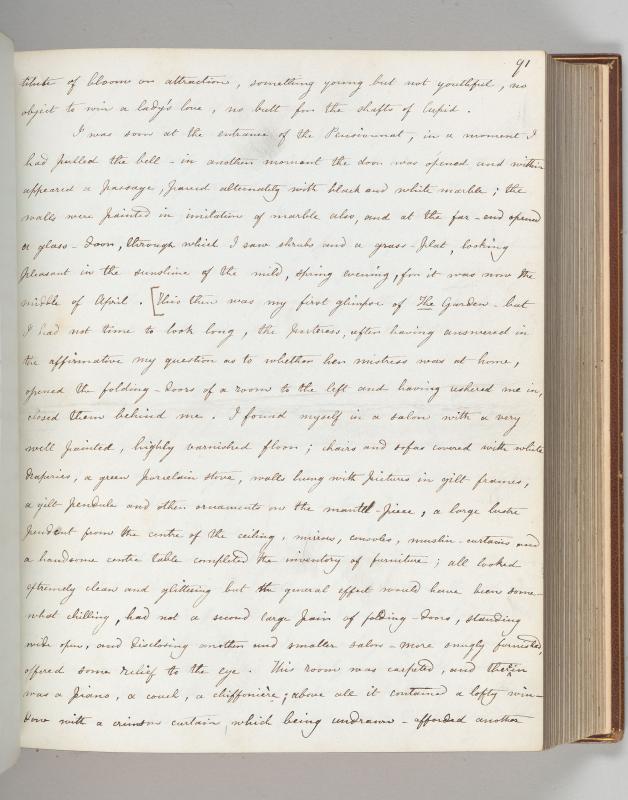 91
titute of bloom or attraction, something young but not youthful, no
object to win a lady's love, no butt for the shafts of Cupid.
I was soon at the entrance of the Pensionnat, in a moment I
had pulled the bell - in another moment the door was opened and within
appeared a passage, paved alternately with black and white marble; the
walls were painted in imitation of marble also, and at the far-end opened
a glass-door, through which I saw shrubs and a grass-plat, looking
pleasant in the sunshine of the mild, spring evening, for it was now the
middle of April. [This then was my first glimpse of The Garden - but
I had not time to look long, the Portress, after having answered in
the affirmative my question as to whether her mistress was at home,
opened the folding-doors of a room to the left and having ushered me in,
closed them behind me. I found myself in a salon with a very
well painted, highly varnished floor; chairs and sofas covered with white
draperies, a green porcelain stove, walls hung with pictures in gilt frames,
a gilt pendule and other ornaments on the mantel-piece, a large lustre
pendent from the centre of the ceiling, mirrors, consoles, muslin-curtains and
a handsome centre table completed the inventory of furniture; all looked
extremely clean and glittering but the general effect would have been some-
what chilling, had not a second large pair of folding-doors, standing
wide open, and disclosing another and smaller salon - more snugly furnished,
offered some relief to the eye. This room was carpeted, and therein
was a piano, a couch, a chiffonière; above all it contained a lofty win-
dow with a crimson curtain which being undrawn - afforded another